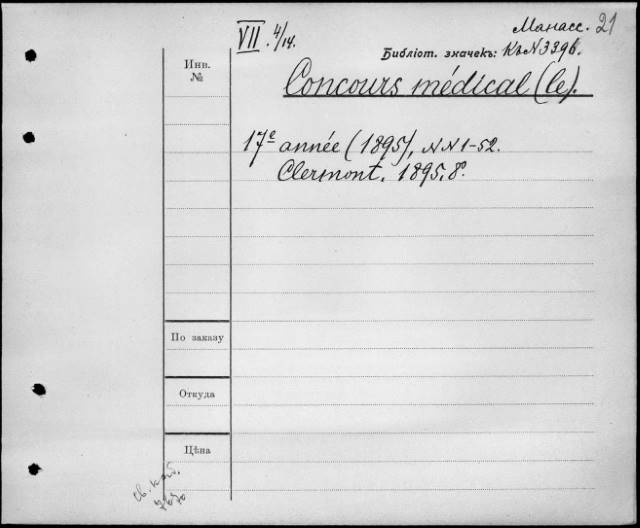 VII. 4/14.
Манасс. 21
Библіот. значекъ: Къ N 3396.
Инв.
№
Concours médical (le).
17e année (1895), NN 1-52.
Clermont. 1895. 8º.
По заказу
Откуда
Цѣна
св. каб.